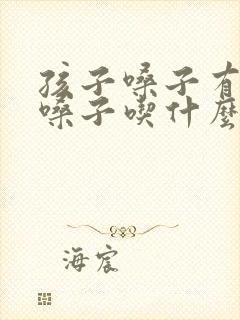 孩子嗓子有
嗓子喫什麼
海宸